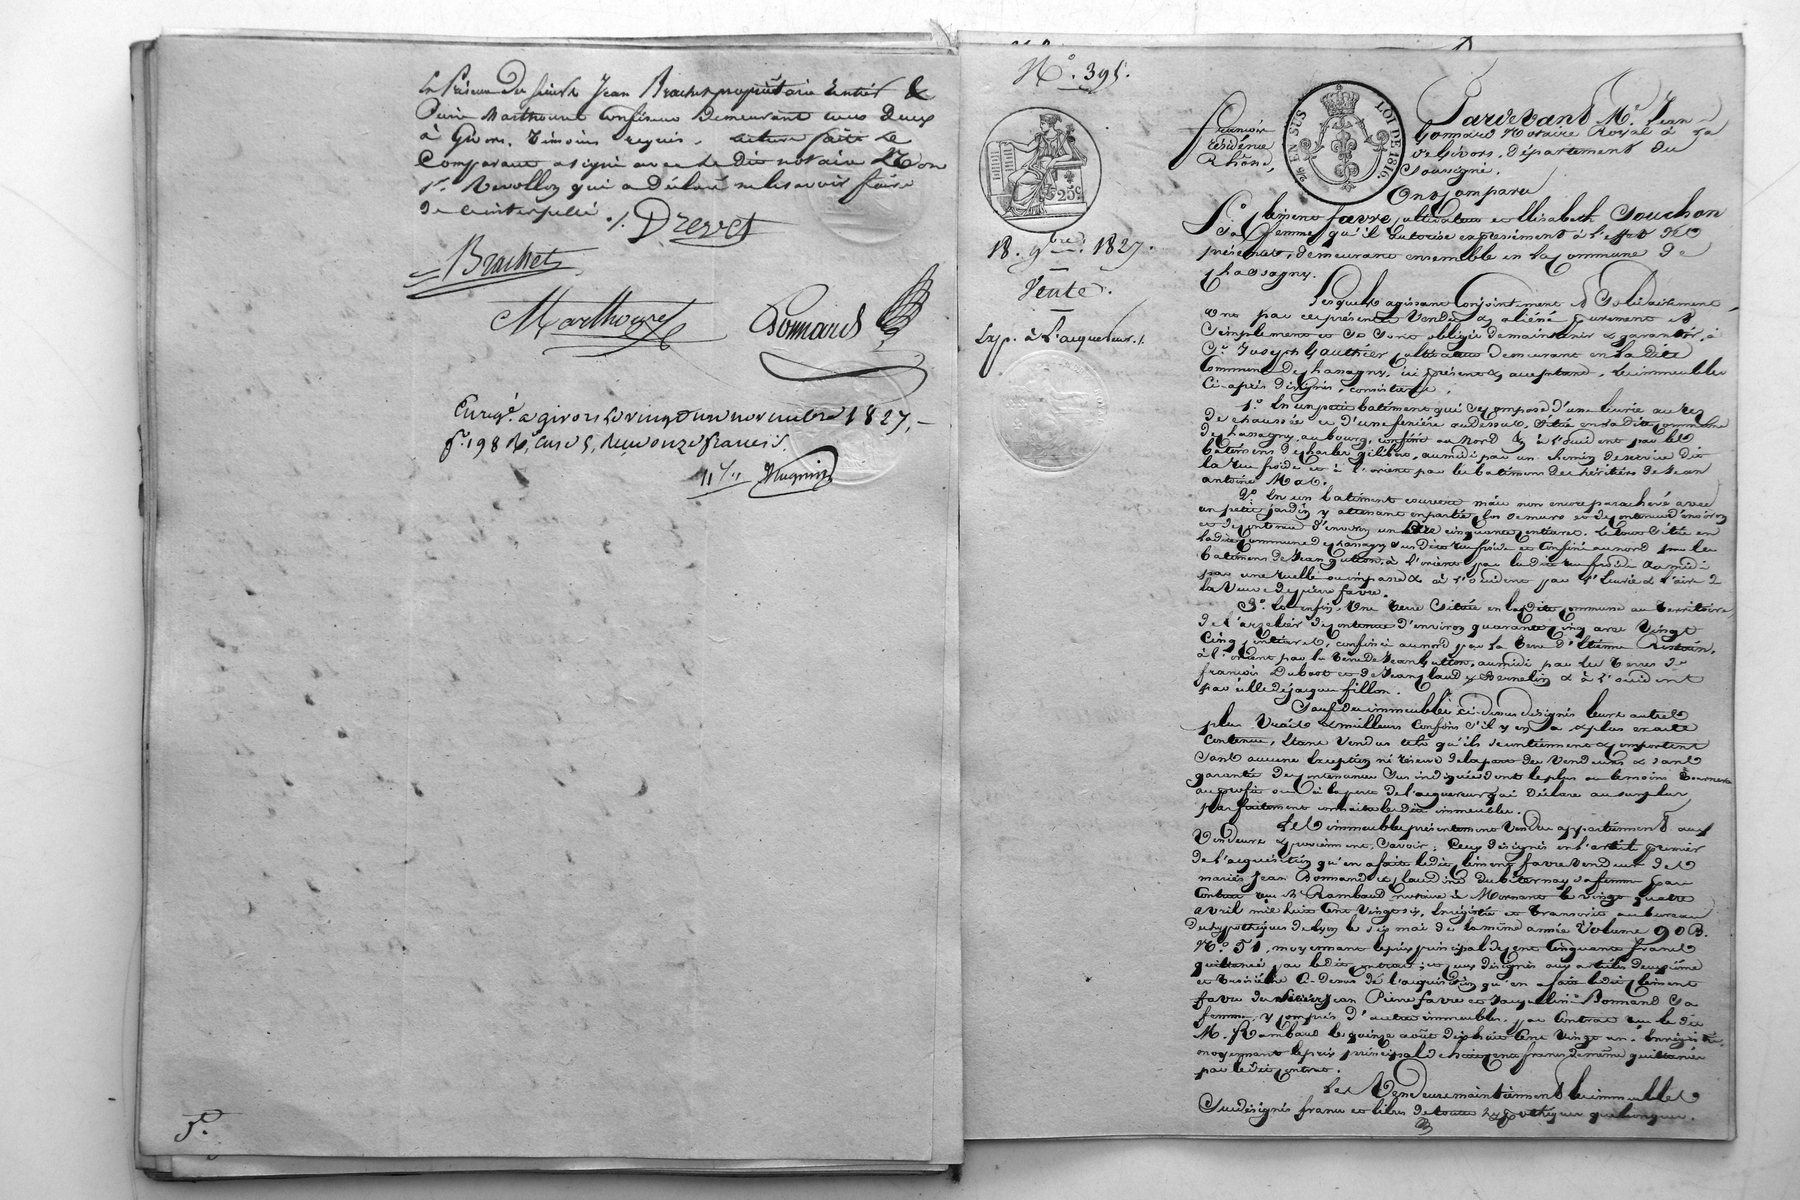 En Présence des sieurs Jean Brachet propriétaire rentier &
Pierre Marthoure Confiseur Demeurant tous Deux
à Givors. Témoins requis. Lecture faite le
Comparant a signé avec le dit notaire & non
Sr. Revollon qui a déclaré ne le savoir faire
de ce interpellé ./. Drevet
Brachet
Marthoure Bomard
Enregé. a givors le vingt un novembre 1827,
fo. 198 Ro, case 5, Reçu onze francs
5o.
No. 395.
25c
18. 9bre. 1827.
Vente.
Exp. à l'acquéreur ./.
25 EN SUS LOI DE 1816.
Pardevant Me. Jean
Bomard Notaire Royal à la
résidence de Givors, département du
Rhône, soussigné.
Ont Comparu
Sr. Clément favre, cultivateur et Elisabeth Souchon
sa femme qu'il autorise expressément à l'effet des
présentes, demeurant ensemble en la Commune de
Chassagny.
Lesquels agissant Conjointement et Solidairement
ont par ces présentes Vendu & aliéné purement et
simplement et se sont obligés de maintenir & garantir, à
Sr. Joseph Gauthier cultivateur Demeurant en la dite
Commune de Chassagny, ici présent & acceptant, les immeubles
Ci-après désignés, consistant :
1o. En un petit batiment qui se compose d'une écurie au rez
de chaussée et d'une fenière au dessus, située en la dite Commune
de Chassagny, au bourg, confiné au Nord & à l'occident par les
batimens de Charles Gilibert, au midi par un chemin de service dit
la rue froide et à l'orient par le batiment des héritiers de Jean
antoine Mat.
2o. En un batiment couvert mais non encore parachevé avec
un petit jardin y attenant en partie clos de murs et de contenue d'environ
et de contenue d'environ un are cinquante centiares. le tout situé en
la dite Commune de Chassagny sus dite rue froide et Confiné au nord par les
batimens de Jean Gutton, à l'orient par la dite rue froide au midi
par une ruelle ou impasse & à l'occident par l'écurie & l'aire de
la Veuve de pierre favre.
3o. Et enfin, Une terre située en la dite commune au territoire
de l'arzelier de contenue d'environ quarante Cinq ares Vingt
Cinq Centiares, confinée au nord par la terre d'Etienne
à l'orient par la terre de Jean Gutton, au midi par les terres de
francois Dubost et de Jean Claude & à l'occident
par celle de jacques fillon.
Sauf des immeubles ci-dessus désignés leurs autres
plus Vrais & meilleurs Confins s'il y en a & plus exacte
Contenue, étant Vendus tels qu'ils se contiennent & comportent
sans aucune Exception ni réserve de la part des Vendeurs & sans
garantie de contenances sus indiquée dont le plus ou le moins tournera
au profit ou à la perte de l'acquéreur qui déclare au surplus
parfaitement connaitre les dits immeubles.
Les immeubles présentement Vendus appartiennent aux
Vendeurs & proviennent, Savoir : Ceux désignés en l'article premier
de l'acquisition qu'en a faite le dit Clément favre vendeur des
mariés Jean Bonnand et Claudine Dubiternay sa femme par
Contrat reçu Me Rambaud notaire à Mornant le vingt quatre
avril mil huit Cent Vingt six, Enregistré et transcrit au bureau
des hypothèques de Lyon le six mai de la même année Volume 90 B.
No. 51, moyennant le prix principal de Cent Cinquante francs
quittancé par le dit contrat ; et ceux désignés aux articles deuxième
et troisième Ci-dessus de l'acquisition qu'en a faite le dit Clément
favre des Jean Pierre favre et Jacqueline Bonnand Sa
femme, y compris d'autres immeubles, par Contrat reçu le dit
Me. Rambaud le quinze août dix huit Cent Vingt un. Enregistré
moyennant le prix principal de huit cent francs de même quittancé
par le dit Contrat.
Les Vendeurs maintiennent les immeubles
Susdésignés francs et libres de toutes hypothèques quelconques.